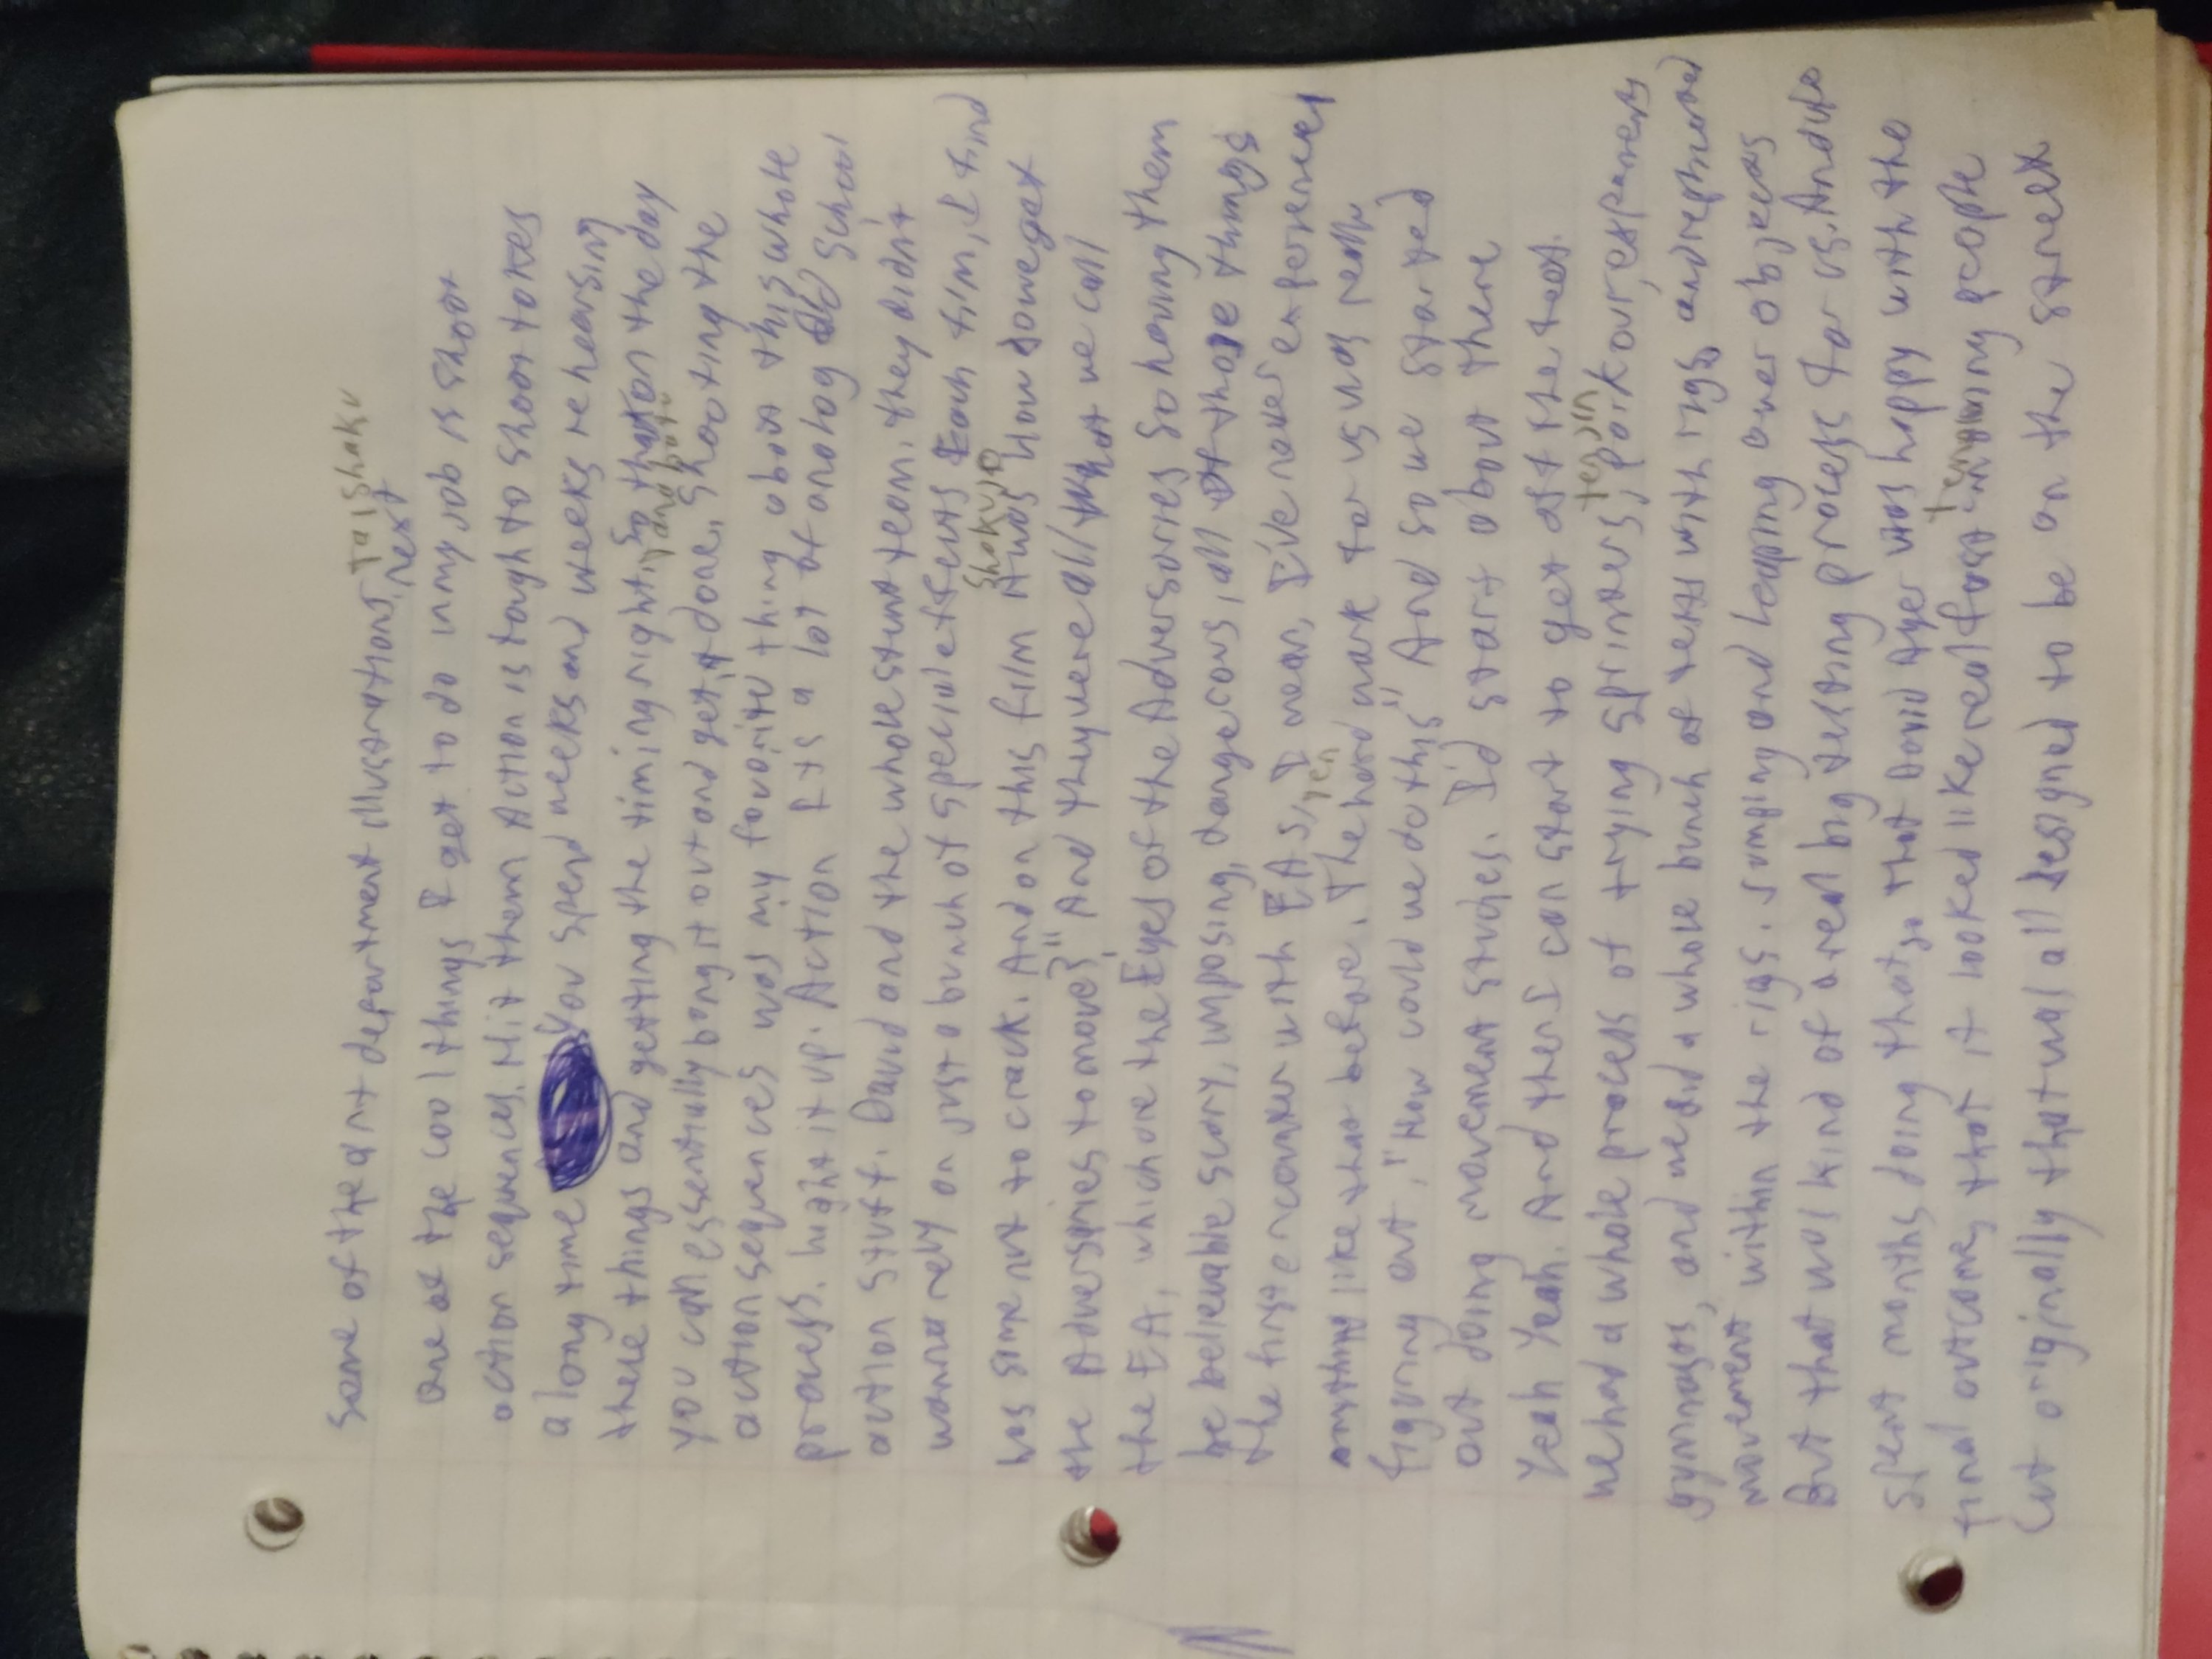 some of the art department illustrations, Taishaku
next
one of the cool things I get to do in my job is shoot
action sequences. Hit them Action is tough to shoot takes
a long time You spend weeks and weeks rehearsing
these things and getting the timing right, so that on the day
you can essentially bang it out and get it done. Shooting the
action sequences was my favorite thing about this whole
process. hight it up. Action It's a lot of analog old school
action stuff. David and the whole stunt team, they didn't
wanna rely on just a bunch of special effects Each film, I find
Shakujo
has some nut to crack. And on this film it was How do we get
the Adversaries to move?" And they were all what we call
the EA, which are the Eyes of the Adversaries So having them
be believable scary, imposing, dangerous, all of those things
the first encounter with EAs, I mean, I've never experienced
yen
anything like that before. The hard work for us was really
figuring out, "How could we do this" And so we started
out doing movement studies. I'd start about there
Yeah Yeah. And then I can start to get at the feet.
we had a whole process of trying sprinters, parkour, experiments
gymnasts, and we did a whole bunch of tests with rigs and rephrased
movement within the rigs. Jumping and leaping over objects
But that was kind of a real big testing process for us. And we
spent months doing that, so that David Ayer was happy with the
final outcome, that it looked like real fast moving people
Cut originally that was all designed to be on the street